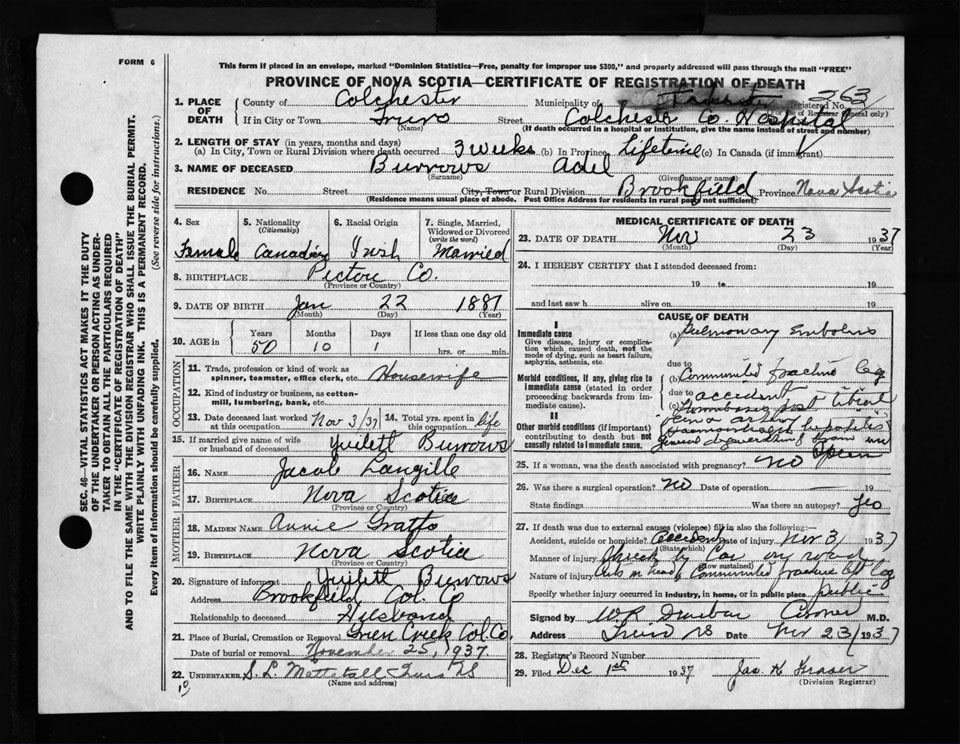 FORM 6
This form if placed in an envelope, marked "Dominion Statistics—Free, penalty for improper use $300," and properly addressed will pass through the mail "FREE"
PROVINCE OF NOVA SCOTIA—CERTIFICATE OF REGISTRATION OF DEATH
SEC. 46—VITAL STATISTICS ACT MAKES IT THE DUTY
OF THE UNDERTAKER OR PERSON ACTING AS UNDER-
TAKER TO OBTAIN ALL THE PARTICULARS REQUIRED
IN THE "CERTIFICATE OF REGISTRATION OF DEATH"
AND TO FILE THE SAME WITH THE DIVISION REGISTRAR WHO SHALL ISSUE THE BURIAL PERMIT.
WRITE PLAINLY WITH UNFADING INK. THIS IS A PERMANENT RECORD.
Every item of Information should be carefully supplied. (See reverse side for instructions.)
1. PLACE OF DEATH
County of Colchester Municipality of Registered No. 263
(For use of Registrar General only)
If in City or Town Truro Street Colchester Co. Hospital
(Name) (If death occurred in a hospital or institution, give the name instead of street and number)
2. LENGTH OF STAY (in years, months and days)
(a) In City, Town or Rural Division where death occurred 3 weeks (b) In Province Lifetime (c) In Canada (if immigrant)
3. NAME OF DECEASED Burrows Adel
(Surname) (Given name or names)
RESIDENCE No. Street City, Town or Rural Division Brookfield Province Nova Scotia
(Residence means usual place of abode. Post Office Address for residents in rural parts not sufficient)
4. Sex
Female
5. Nationality
(Citizenship)
Canadian
6. Racial Origin
Irish
7. Single, Married,
Widowed or Divorced
(write the word)
Married
8. BIRTHPLACE Pictou Co.
(Province or Country)
9. DATE OF BIRTH Jan 22 1887
(Month) (Day) (Year)
10. AGE in
Years Months Days If less than one day old
50 10 1 hrs. or min.
OCCUPATION
11. Trade, profession or kind of work as
spinner, teamster, office clerk, etc. Housewife
12. Kind of industry or business, as cotton-
mill, lumbering, bank, etc.
13. Date deceased last worked
at this occupation Nov 3/37
14. Total yrs. spent in
this occupation life
15. If married give name of wife
or husband of deceased Yuilett Burrows
FATHER
16. NAME Jacob Langille
17. BIRTHPLACE Nova Scotia
(Province or Country)
MOTHER
18. MAIDEN NAME Annie Gratto
19. BIRTHPLACE Nova Scotia
(Province or Country)
20. Signature of informant Yuilett Burrows
Address Brookfield Col. Co
Relationship to deceased Husband
21. Place of Burial, Cremation or Removal Green Creek Col. Co.
Date of burial or removal November 25, 1937.
22. UNDERTAKER S. L. Mattatall Truro NS
(Name and address)
MEDICAL CERTIFICATE OF DEATH
23. DATE OF DEATH Nov 23 1937
(Month) (Day) (Year)
24. I HEREBY CERTIFY that I attended deceased from:
19 to 19
and last saw h alive on 19
CAUSE OF DEATH
I
Immediate cause
Give disease, injury or complica-
tion which caused death, not the
mode of dying, such as heart failure,
asphyxia, asthenia, etc.
(a) Pulmonary Embolus
due to
Morbid conditions, if any, giving rise to
immediate cause (stated in order
proceeding backwards from im-
mediate cause).
(b) Comminuted fracture leg
due to accident
(c) Thrombosis post tibial
II
Other morbid conditions (if important)
contributing to death but not
causally related to immediate cause.
25. If a woman, was the death associated with pregnancy? no
26. Was there a surgical operation? no Date of operation 19
State findings Was there an autopsy? yes
27. If death was due to external causes (violence) fill in also the following:—
Accident, suicide or homicide? accident Date of injury Nov 3/ 1937
(State which)
Manner of injury Struck by Car on road
(How sustained)
Nature of injury Cuts on head & Comminuted fracture left leg
Specify whether injury occurred in industry, in home, or in public place public
Signed by W R Dunbar Coroner M.D.
Address Truro NS Date Nov 23/1937
28. Registrar's Record Number
29. Filed Dec 1st 1937 Jas. K Fraser
(Division Registrar)